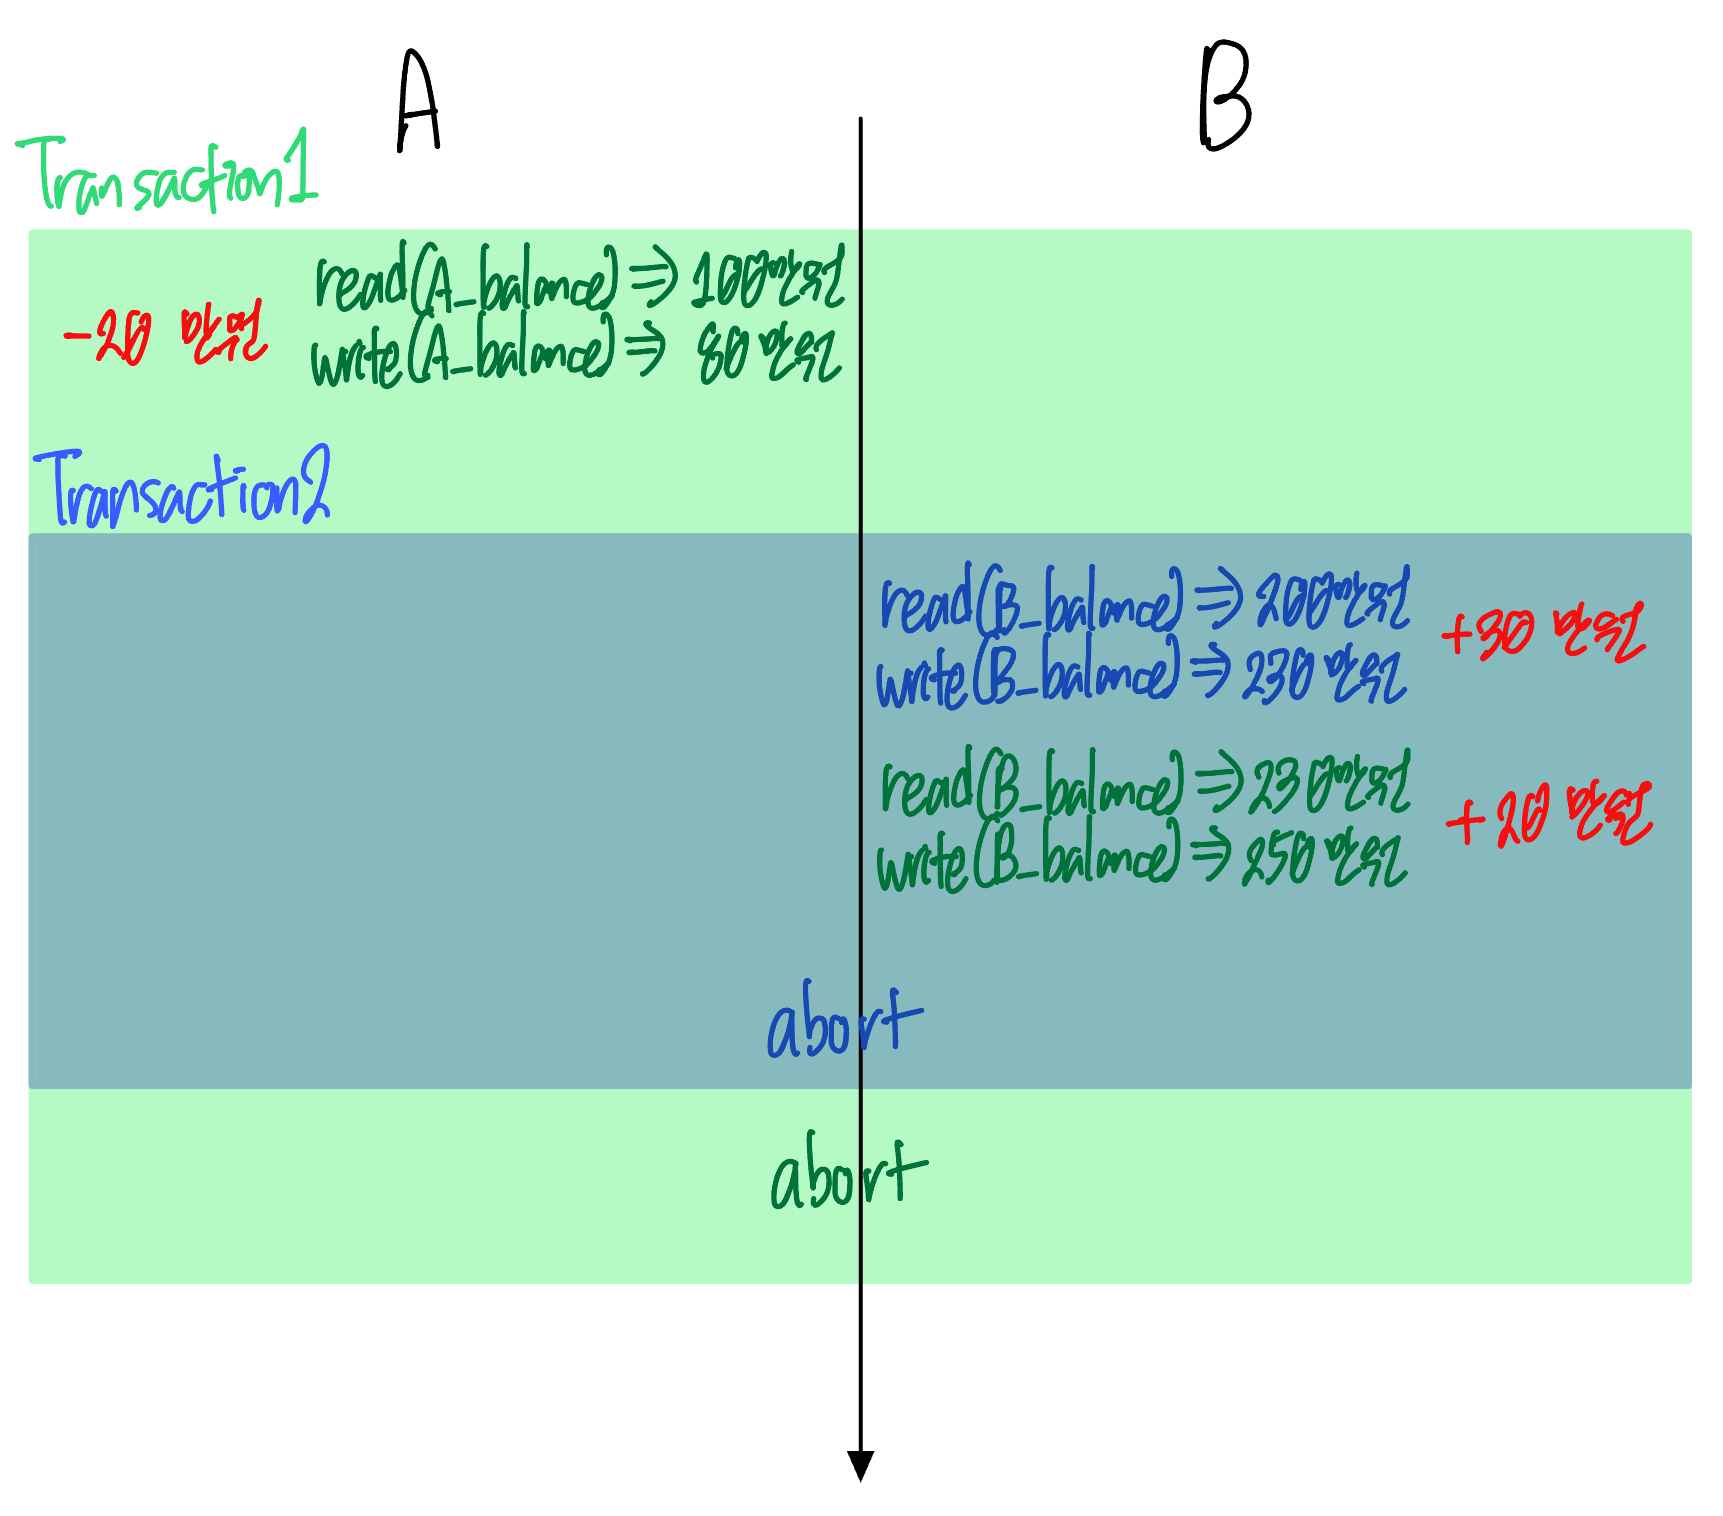 A
B
Transaction1
read(A_balance) => 100만원
-20 만원
write(A_balance) => 80만원
Transaction2
read(B_balance) => 200만원
+30 만원
write(B_balance) => 230만원
read(B_balance) => 230만원
+20 만원
write(B_balance) => 250만원
abort
abort